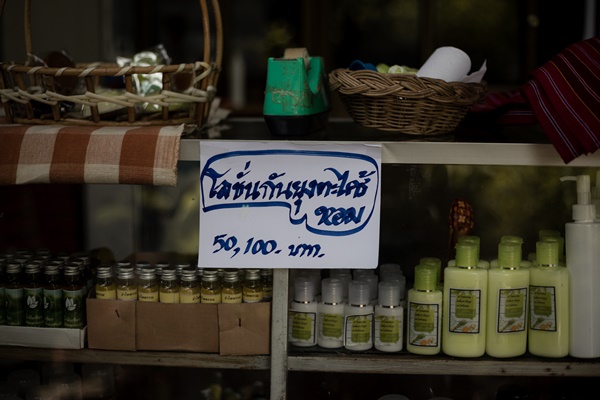 โลชั่นกันยุงตะไคร้
หอม
50,100.- บาท.